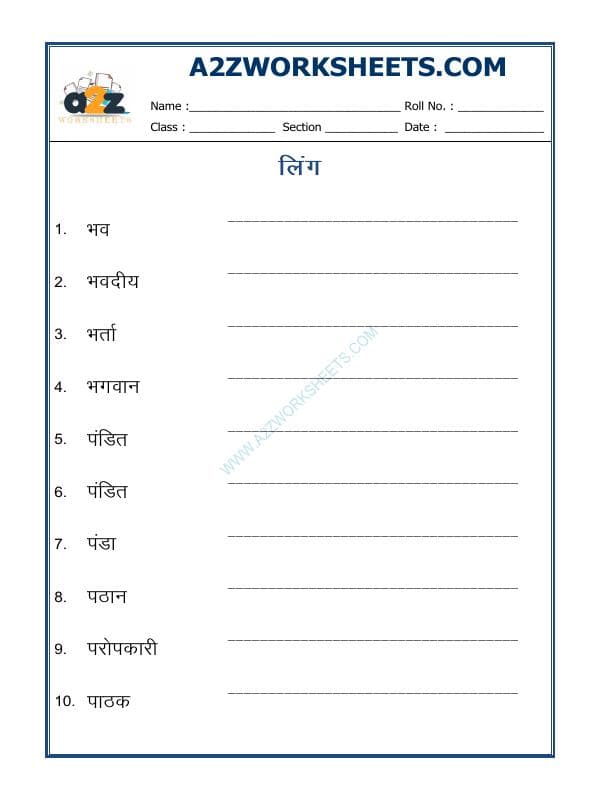 A2ZWORKSHEETS.COM
a2z
WORKSHEETS
Name :______________________________ Roll No. : ______________
Class : ______________ Section ____________ Date : ________________
लिंग
1. भव ___________________________________
2. भवदीय ___________________________________
3. भर्ता ___________________________________
4. भगवान ___________________________________
5. पंडित ___________________________________
6. पंडित ___________________________________
7. पंडा ___________________________________
8. पठान ___________________________________
9. परोपकारी ___________________________________
10. पाठक ___________________________________
WWW.A2ZWORKSHEETS.COM